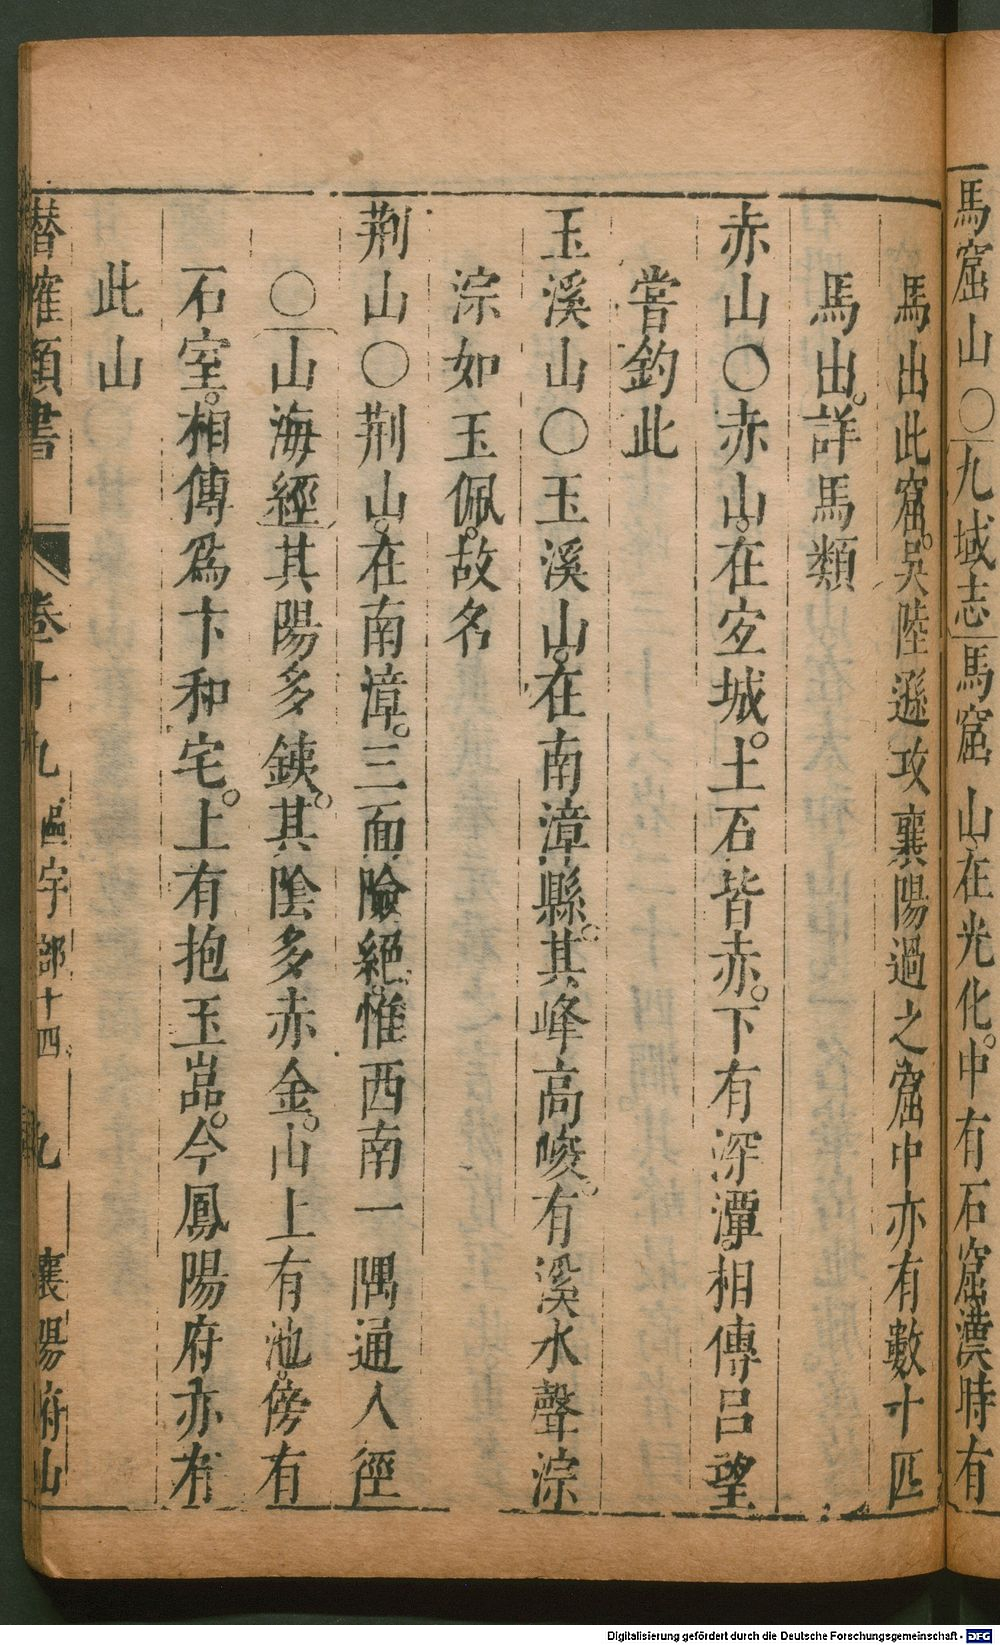 馬窟山○九域志馬窟山在光化。中有石窟漢時有
馬出此窟。吳陸遜攻襄陽過之窟中亦有數十匹
馬出。詳馬類
赤山○赤山。在宐城。土石皆赤。下有深潭。相傳呂望
嘗釣此
玉溪山○玉溪山。在南漳縣。其峰高峻。有溪水聲淙
淙如玉佩。故名
荆山○荆山。在南漳。三面險絕。惟西南一隅通人徑
○山海經其陽多鐵。其陰多赤金。山上有池。傍有
石室。相傳爲卞和宅。上有抱玉嵓。今鳳陽府亦有
此山
潛確類書 卷十九 區宇部十四 九 襄陽府山
Digitalisierung gefördert durch die Deutsche Forschungsgemeinschaft - DFG